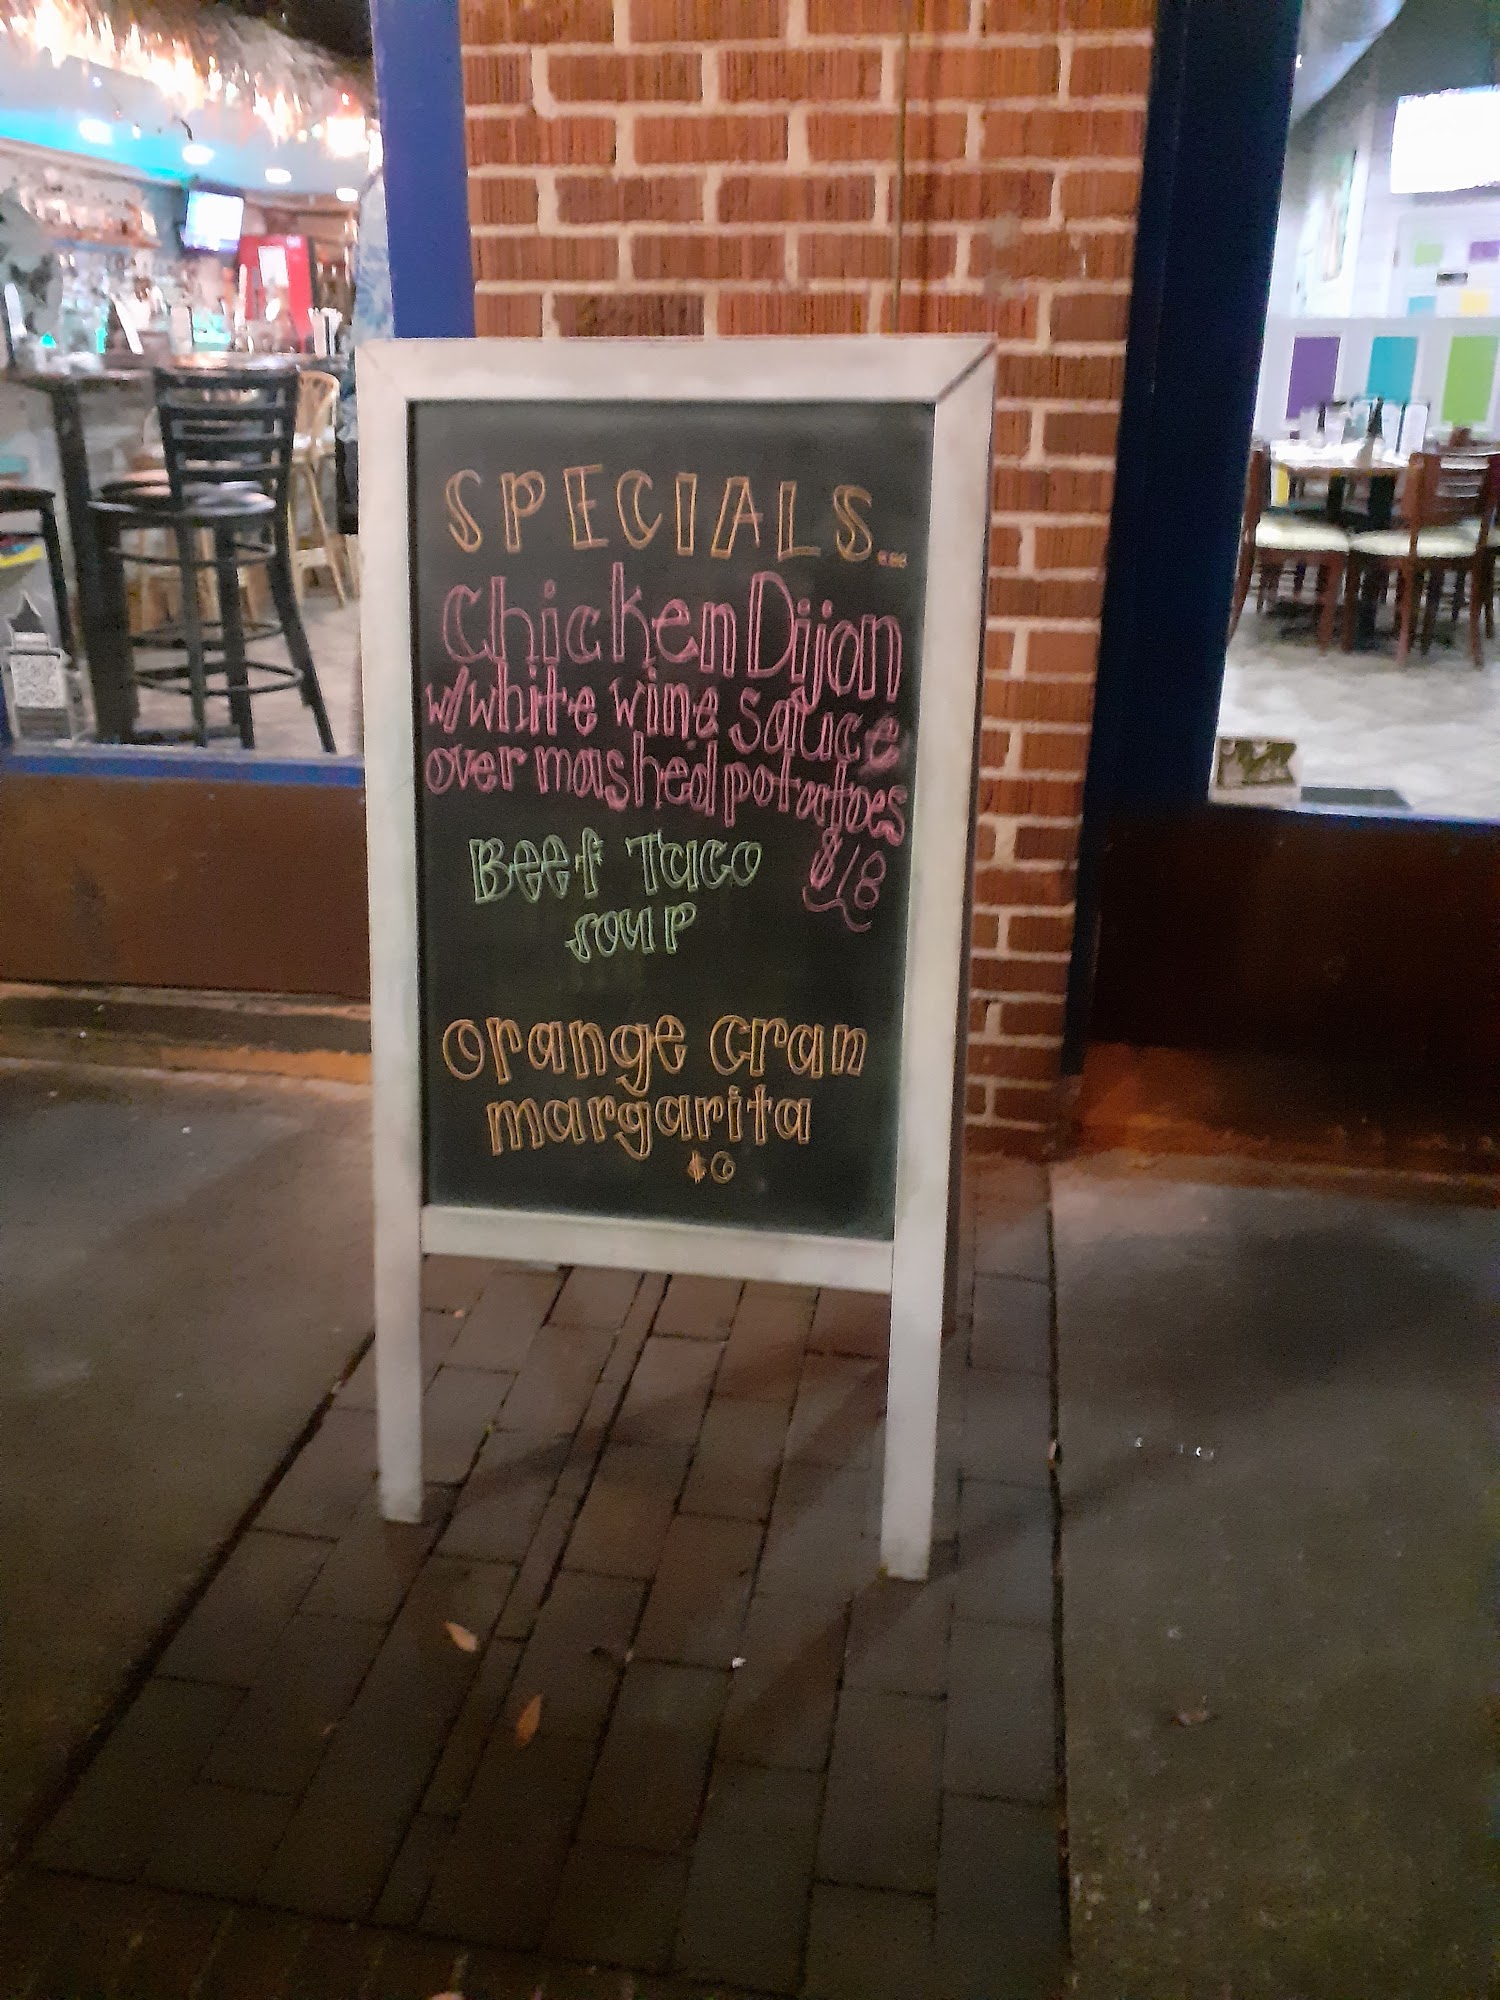 SPECIALS...
Chicken Dijon
w/white wine sauce
over mashed potatoes
$18
Beef Taco
soup
Orange Cran
margarita
$6